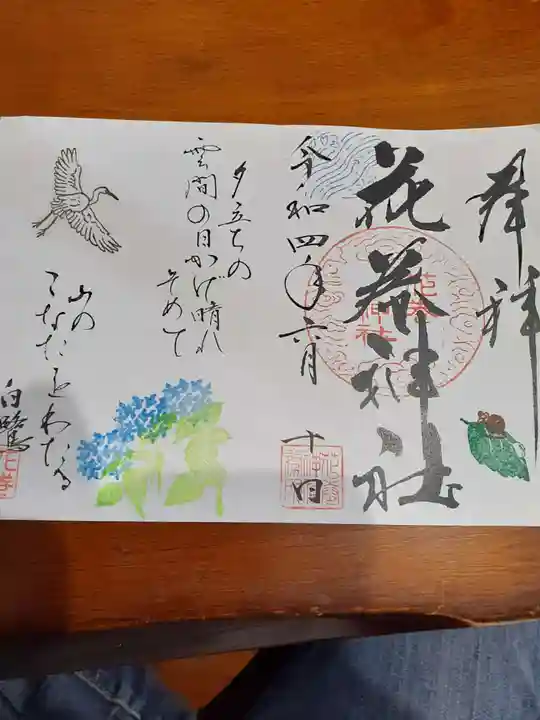 奉拝
花巻神社
令和四年六月十
夕立ちの
雲間の日かげ晴れ
そめて
山の
こなたをわたる
白鷺
花巻神社